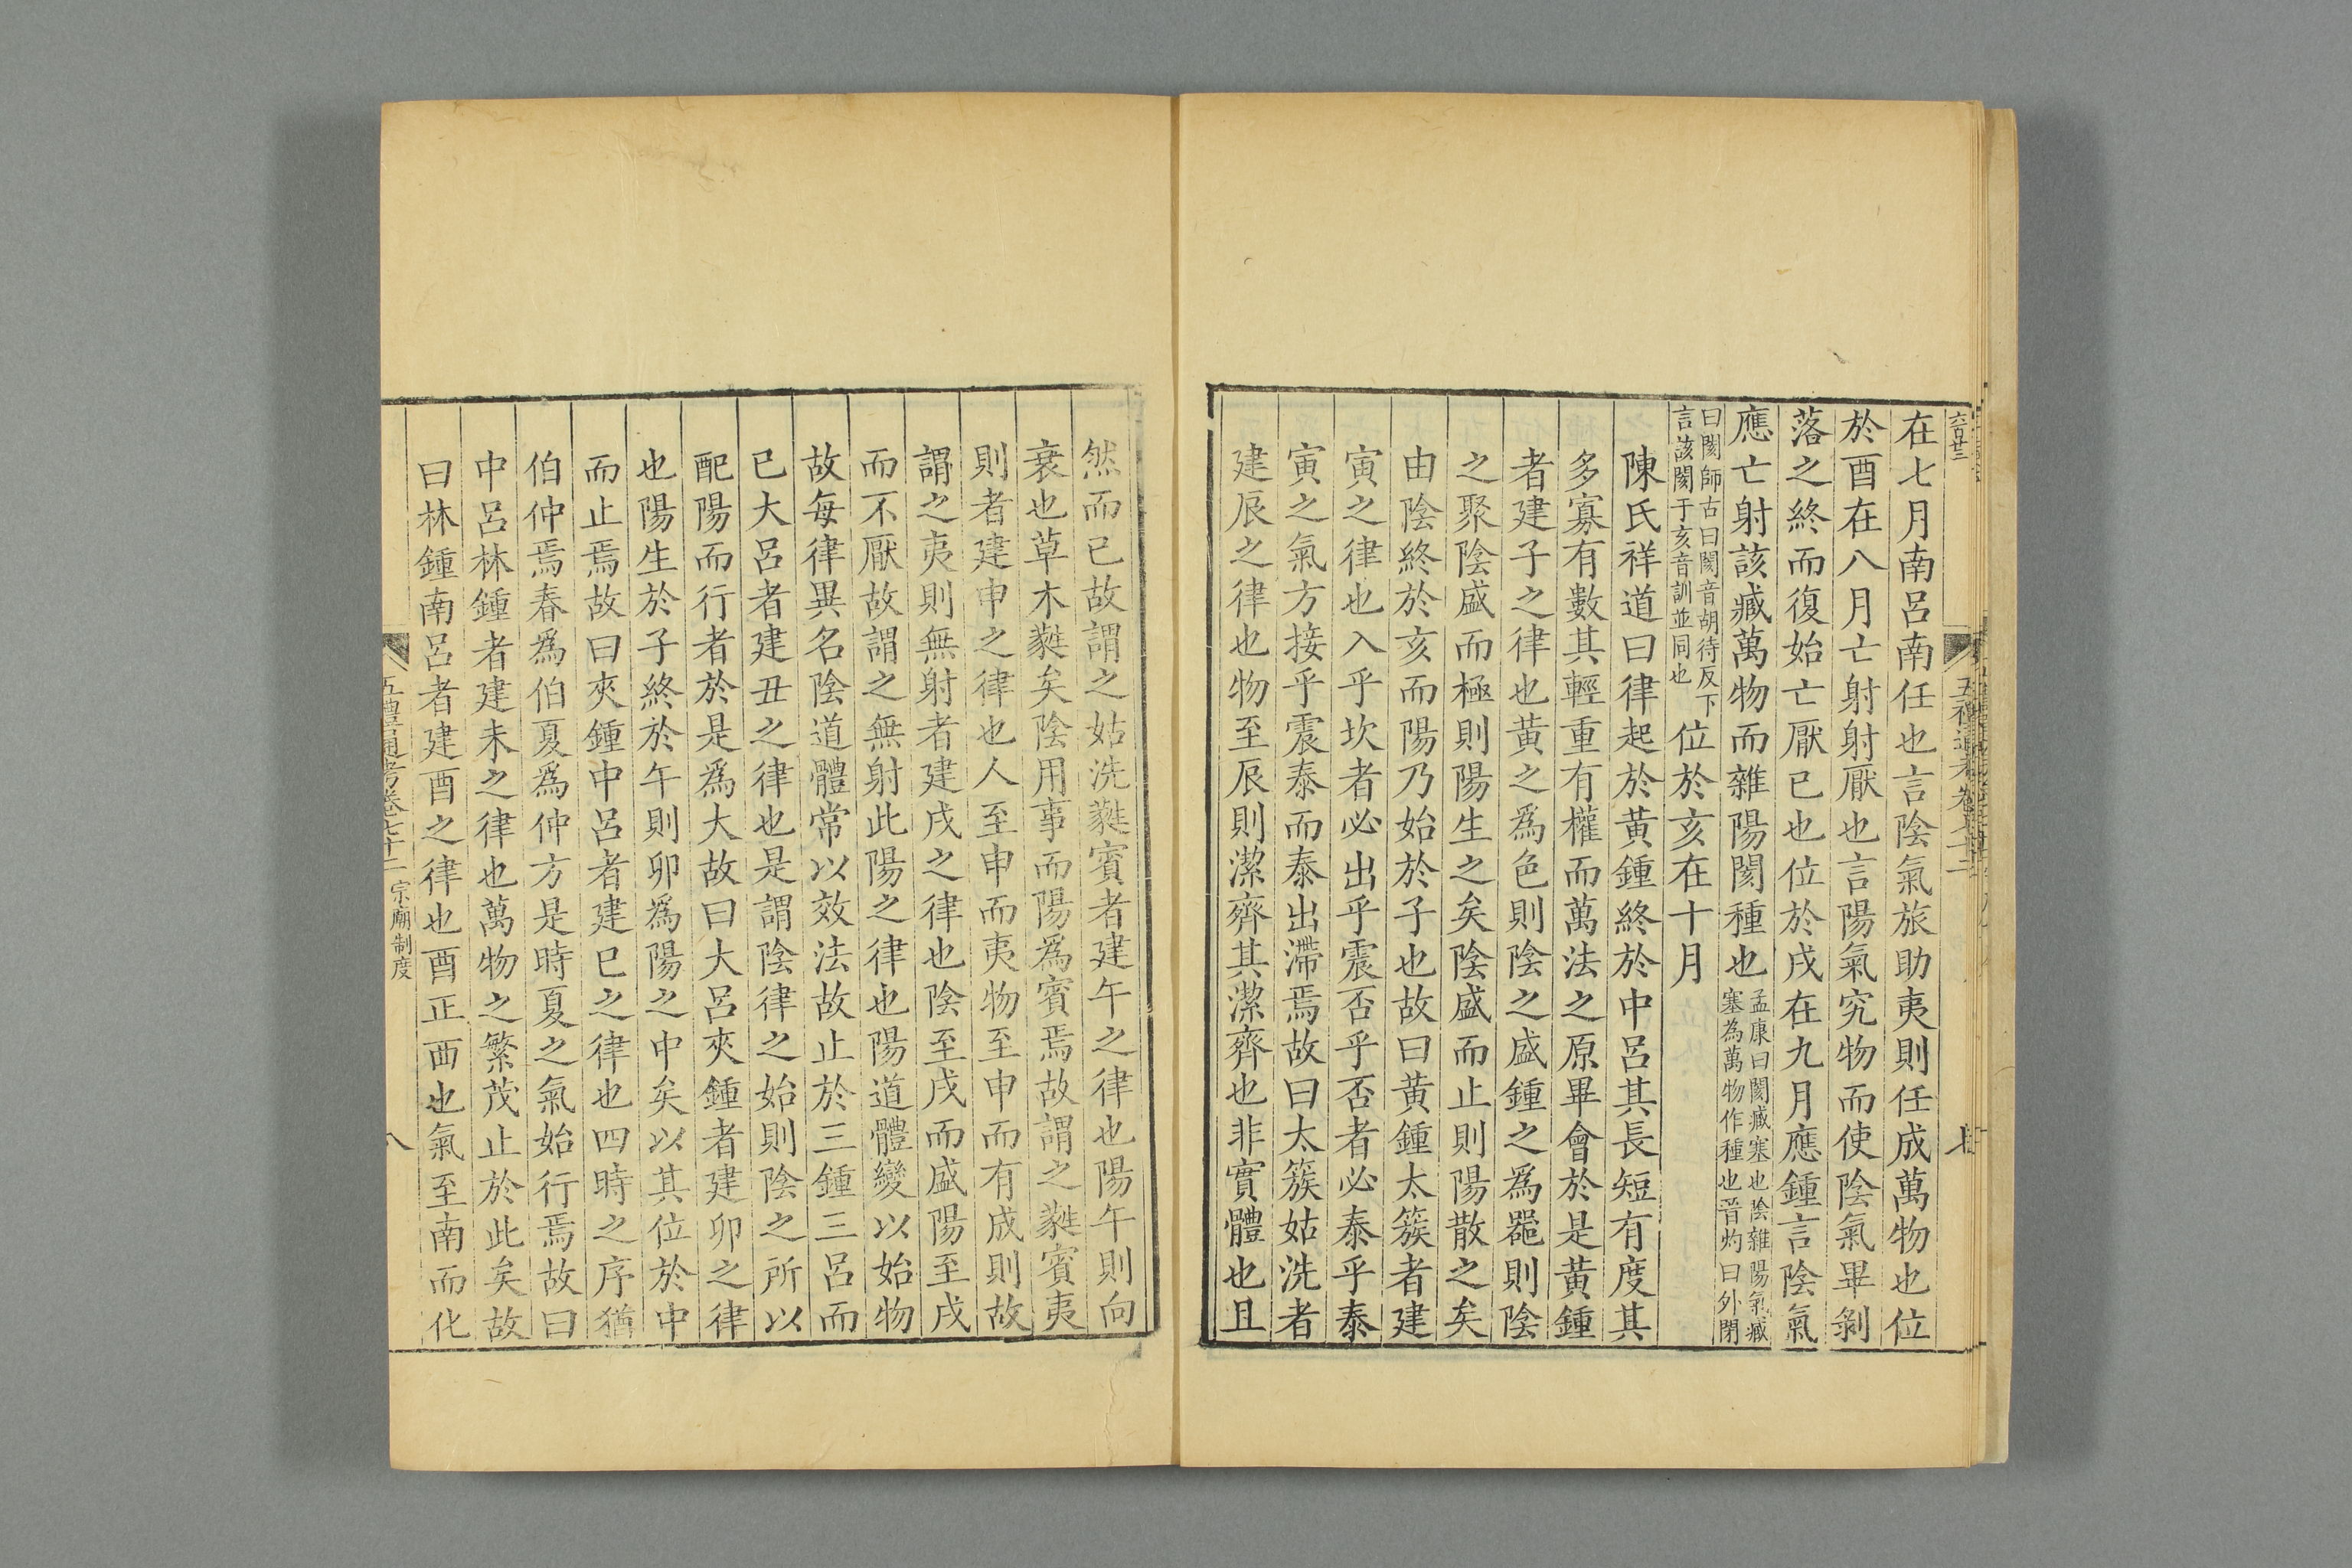 六百廿三
在七月南呂南任也言陰氣旅助夷則任成萬物也位
於酉在八月亡射射厭也言陽氣究物而使陰氣畢剝
落之終而復始亡厭已也位於戌在九月應鍾言陰氣
應亡射該臧萬物而雜陽閡種也孟康曰閡臧塞也陰雜陽氣臧
塞為萬物作種也晉灼曰外閉
曰閡師古曰閡音胡待反下
言該閡于亥音訓並同也位於亥在十月
陳氏祥道曰律起於黃鍾終於中呂其長短有度其
多寡有數其輕重有權而萬法之原畢會於是黃鍾
者建子之律也黃之為色則陰之盛鍾之為器則陰
之聚陰盛而極則陽生之矣陰盛而止則陽散之矣
由陰終於亥而陽乃始於子也故曰黃鍾太簇者建
寅之律也入乎坎者必出乎震否乎否者必泰乎泰
寅之氣方接乎震泰而泰出滯焉故曰太簇姑洗者
建辰之律也物至辰則潔齊其潔齊也非實體也且
然而已故謂之姑洗蕤賓者建午之律也陽午則向
衰也草木蕤矣陰用事而陽為賓焉故謂之蕤賓夷
則者建申之律也人至申而夷物至申而有成則故
謂之夷則無射者建戌之律也陰至戌而盛陽至戌
而不厭故謂之無射此陽之律也陽道體變以始物
故每律異名陰道體常以效法故止於三鍾三呂而
已大呂者建丑之律也是謂陰律之始則陰之所以
配陽而行者於是為大故曰大呂夾鍾者建卯之律
也陽生於子終於午則卯為陽之中矣以其位於中
而止焉故曰夾鍾中呂者建巳之律也四時之序猶
伯仲焉春為伯夏為仲方是時夏之氣始行焉故曰
中呂林鍾者建未之律也萬物之繁茂止於此矣故
曰林鍾南呂者建酉之律也酉正西也氣至南而化
五禮通考卷七十二 宗廟制度 八